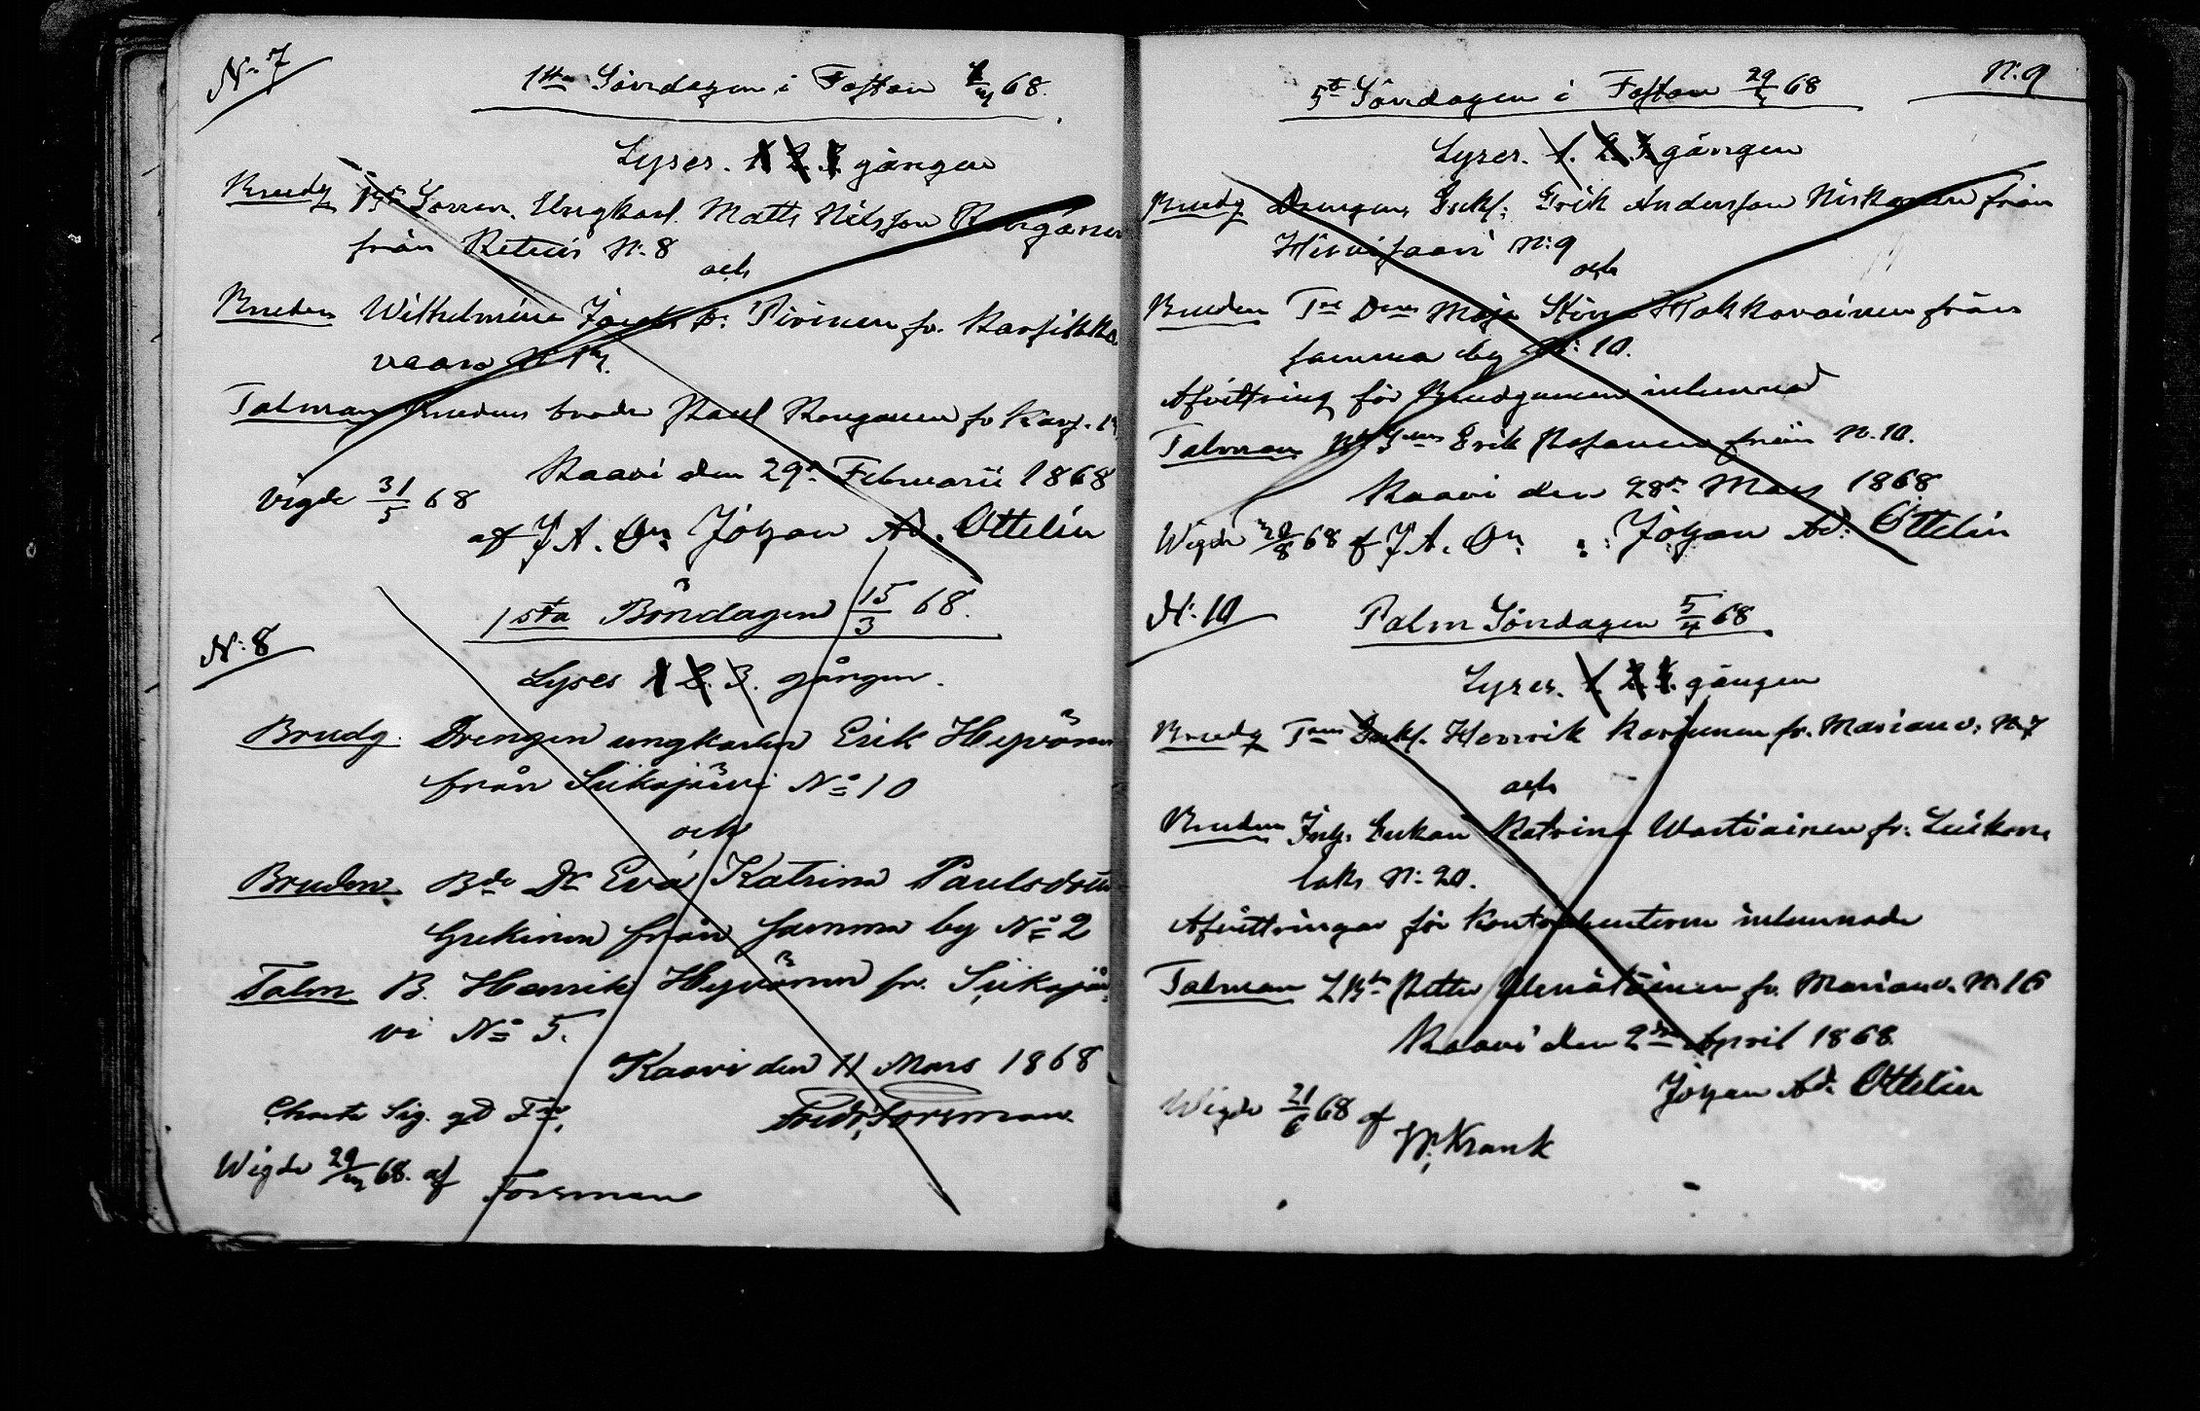 N:o 7
1sta Söndagen i Fastan 1/3 68.
Lyses. 1 2. 3. gången
Brudg Bde Sonen. Ungkarl. Matts Nilsson Konganen
från Retuis N:o 8
och
Bruden Wilhelmina Jacobs D: Pirinen fr. Karsikka
vaara N:o
Talman Brudens broder Paul Konganen fr Kars.
Kaavi den 29de Februarii 1868
Vigde 31/5 68
af J. A. On: Johan Ad. Ottelin
1sta Böndagen 15/3 68.
N:o 8
Lyses 1 2. 3. gången.
Brudg. Drengen ungkarlen Erik Hyvönen
från Siikajärvi No 10
och
Bruden Bde Dr Eva Katrina Paulsdotter
från samma by No 2
Talm B. Henrik Hyvönen fr. Siikajär
vi No 5.
Kaavi den 11 Mars 1868
Charta Sig. gd
Fredr. Forsman
Wigde 29/3 68. af Forsman
N:o 9
5te Söndagen i Fastan 29/3 68
Lyses. 1. 2. 3. gången
Brudg Drengen, Enkl: Erik Andersson Niskanen från
Hirvisaari N:o 9
och
Bruden Tne Dren Maja Stina Hakkarainen från
samma by N:o 10.
Afvittring för Brudgumen inlemnad
Talman Erik från N:o 10.
Kaavi den 28de Mars 1868
Wigde 68 af J. A. On: Johan Ad: Ottelin
N:o 10
Palm Söndagen 5/4 68
Lyses. 1. 2. 3. gången
Brudg Enkl. Henrik Karjunen fr. Marianv. N:o 7
och
Bruden Inh. Enkan Katrina Wartiainen fr: Luikon
laks N:o 20.
Afvittringar för Kontrahenterne inlemnade
Talman Petter fr. Marianv. N:o 16
Kaavi den 2dra April 1868
Johan Ad. Ottelin
Wigde 21/6 68 af
W. Krank